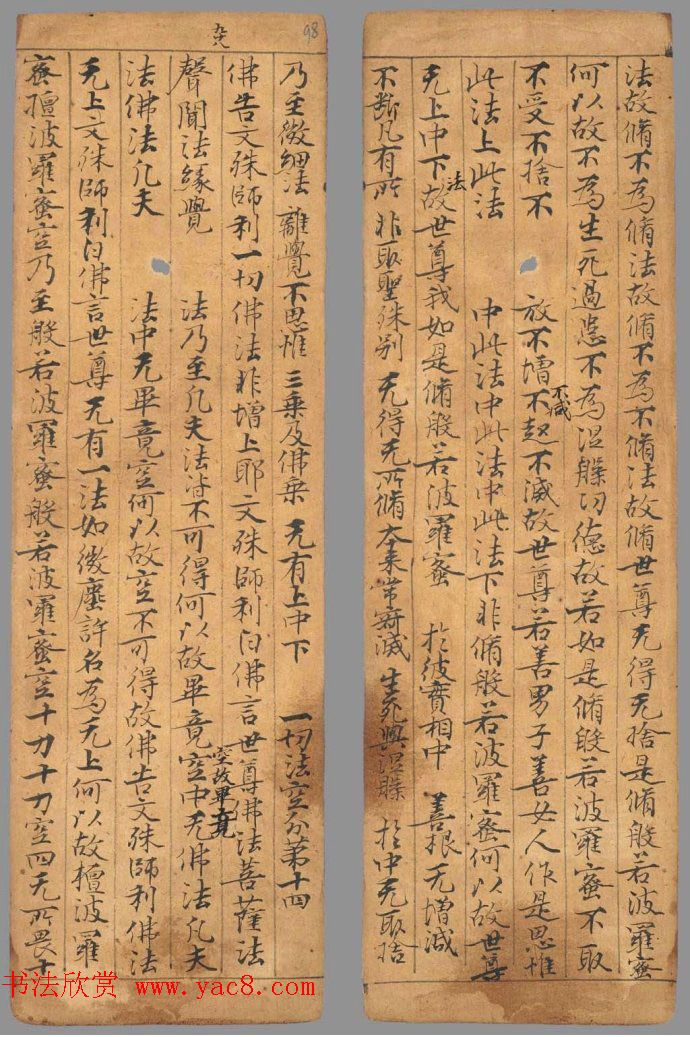 法故脩不為脩法故脩不為不脩法故脩世尊无得无捨是脩般若波羅蜜
何以故不為生死過患不為涅槃功德故若如是脩般若波羅蜜不取
不受不捨不 放不增不減不起不滅故世尊若善男子善女人作是思惟
此法上此法 中此法中此法中此法下非脩般若波羅蜜何以故世尊
无上中下法故世尊我如是脩般若波羅蜜 於彼實相中 善根无增減
不斷凡有所 非取聖殊别 无得无所脩 本来常寂滅 生死與涅槃 於中无取捨
98
乃至微細法 離覺不思惟 三乘及佛乘 无有上中下 一切法空分第十四
佛告文殊師利一切佛法非增上耶文殊師利白佛言世尊佛法菩薩法
聲聞法緣覺 法乃至凡夫法皆不可得何以故畢竟空故畢竟空中无佛法凡夫
法佛法凡夫 法中无畢竟空何以故空不可得故佛告文殊師利佛法
无上文殊師利白佛言世尊无有一法如微塵許名為无上何以故檀波羅
蜜檀波羅蜜空乃至般若波羅蜜般若波羅蜜空十力十力空四无所畏十
书法欣赏 www.yac8.com